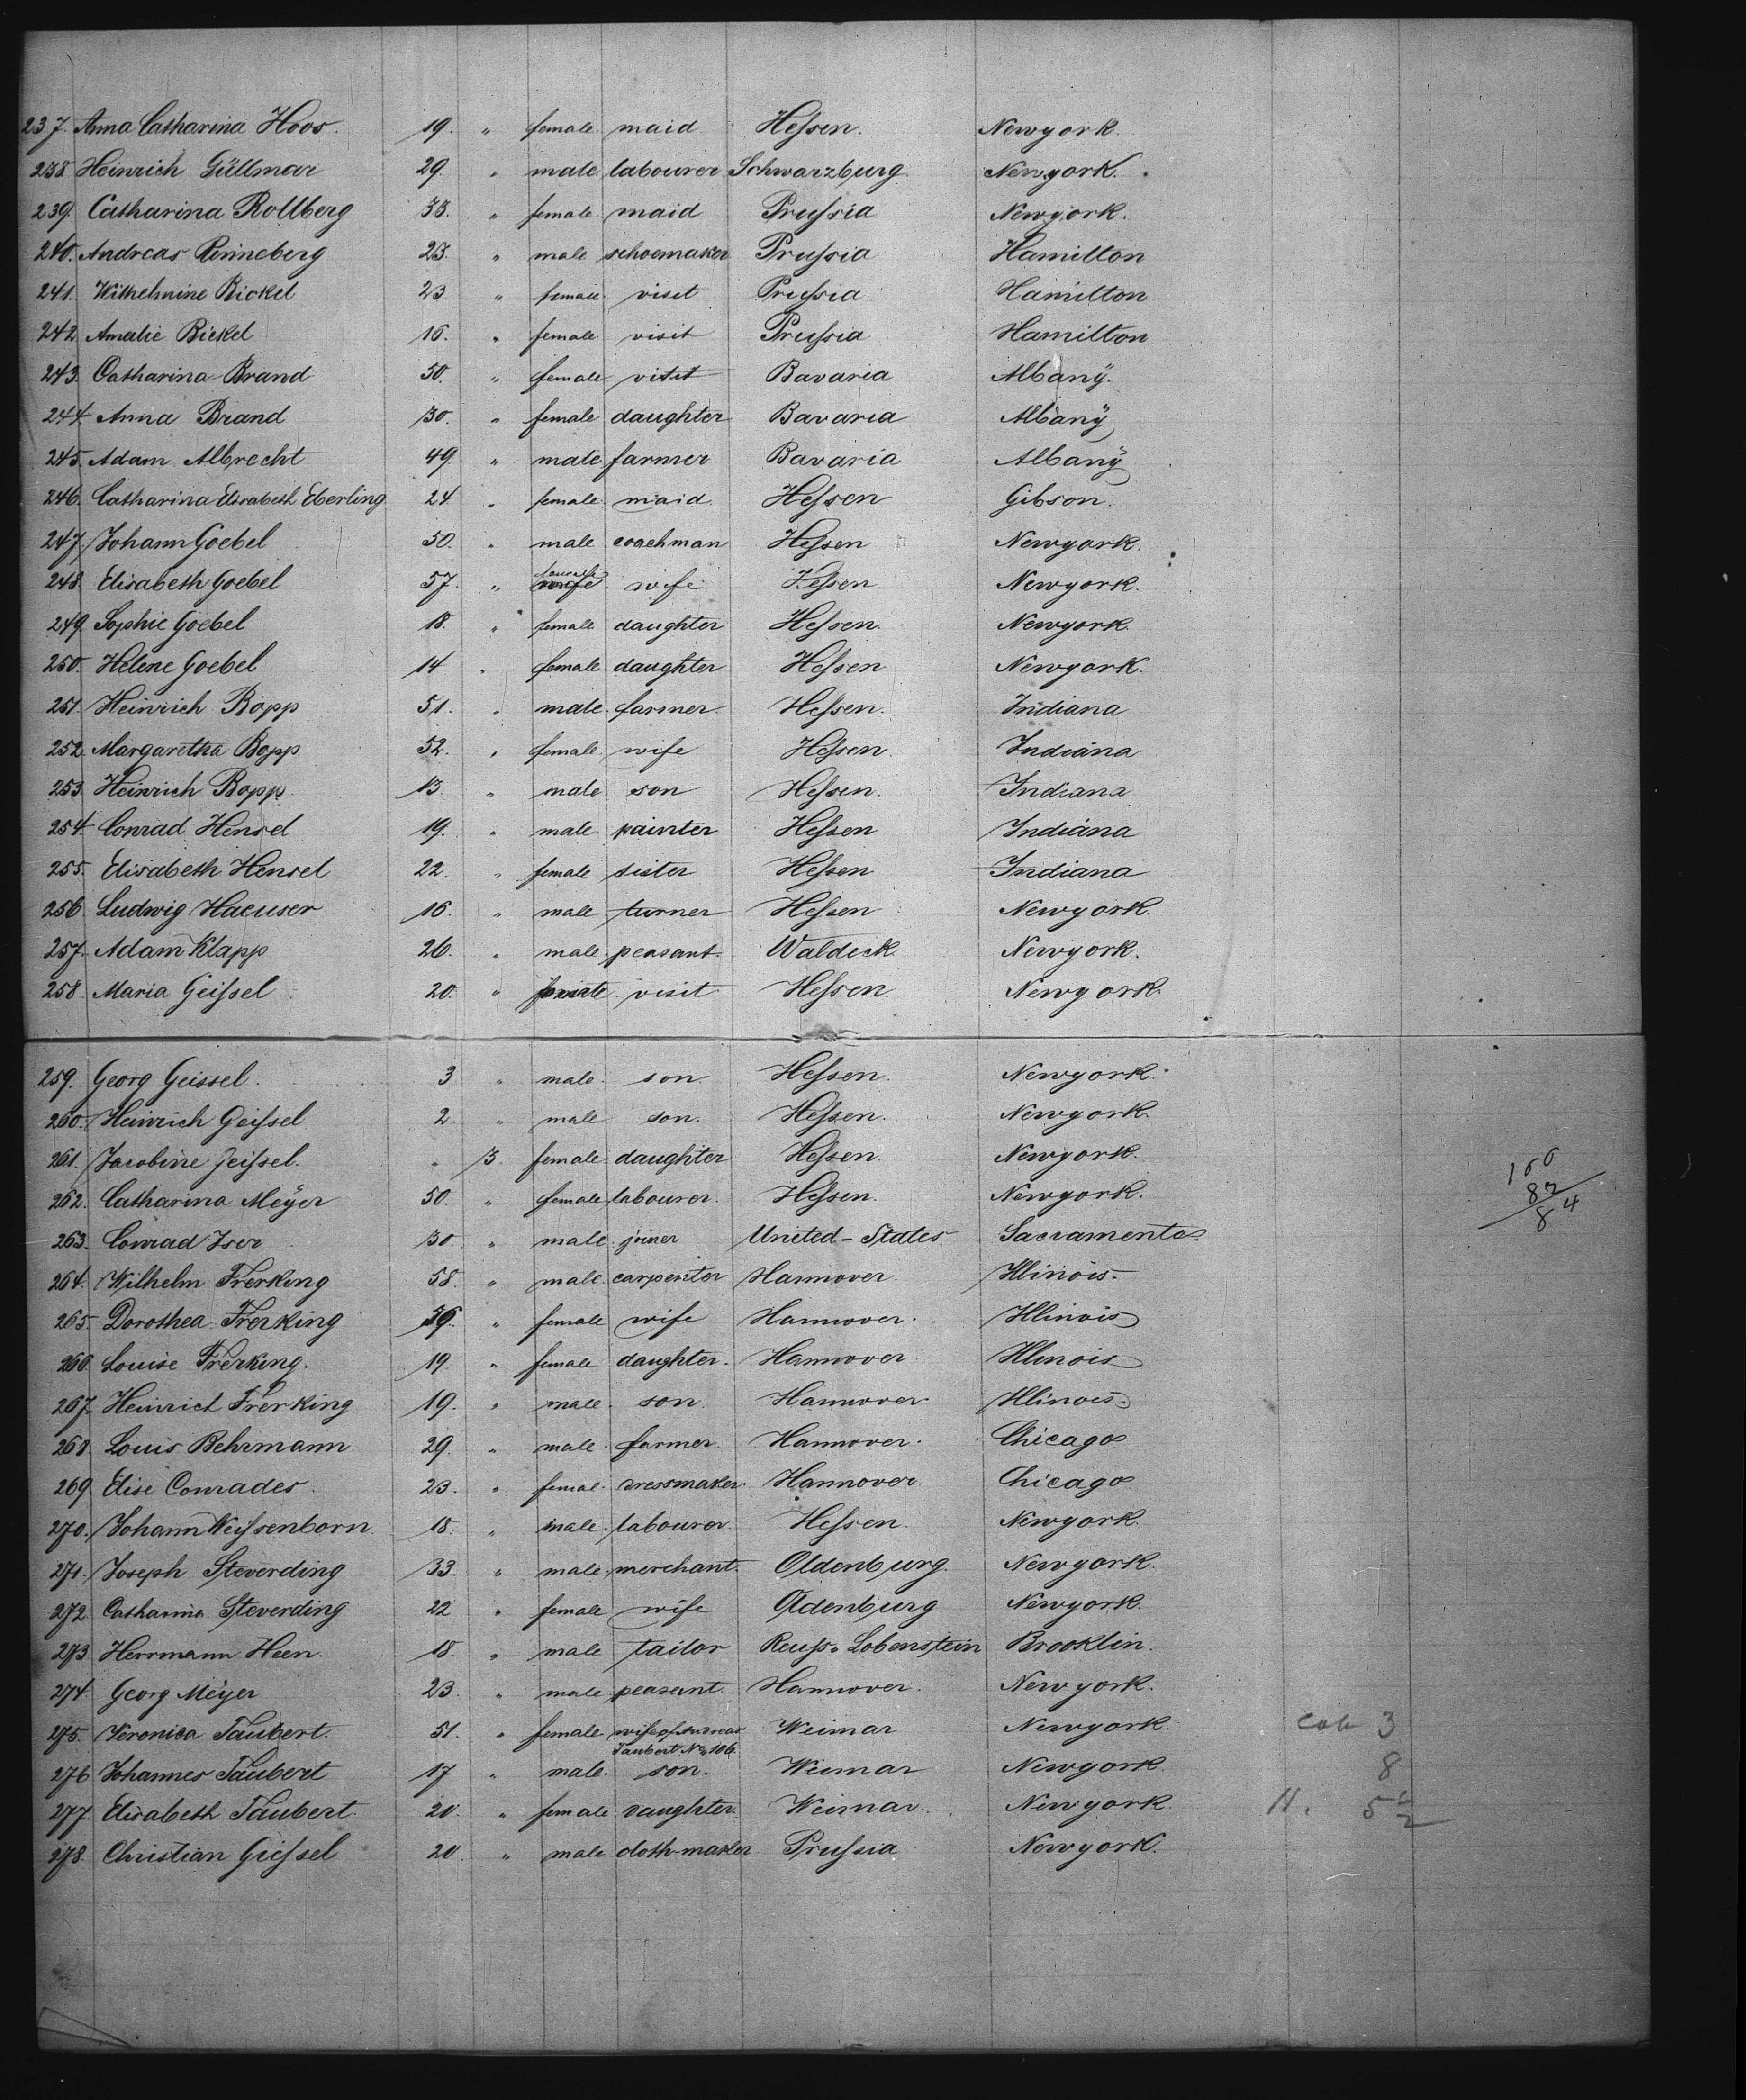 237. Anna Catharina Hoos. 19. " female maid Heſsen. Newyork.
238 Heinrich Güllmar 29. " male labourer Schwarzburg Newyork.
239. Catharina Rollberg 33. " female maid Pruſsia Newyork.
240. Andreas Rinneberg 23. " male schoemaker Pruſsia Hamilton
241. Wilhelmine Bickel 23 " female visit Pruſsia Hamilton
242 Amalie Bickel 16. " female visit Pruſsia Hamilton
243. Catharina Brand 50. " female visit Bavaria Albanÿ.
244. Anna Brand 30. " female daughter Bavaria Albanÿ
245. Adam Albrecht 49. " male farmer Bavaria Albanÿ
246. Catharina Elisabeth Eberling 24 " female maid. Heſsen Gibson.
247. Johann Goebel 50. " male coachman Heſsen Newyork.
248. Elisabeth Goebel 57. " female wife Heſsen Newyork.
249. Sophie Goebel 18. " female daughter Heſsen Newyork.
250. Helene Goebel 14 " female daughter Heſsen Newyork.
251. Heinrich Bopp 51. " male farmer Heſsen. Indiana
252. Margaretha Bopp 52. " female wife Heſsen. Indiana
253. Heinrich Bopp 13. " male son Heſsen. Indiana
254 Conrad Hensel 19. " male painter Heſsen Indiana
255. Elisabeth Hensel 22. " female sister Heſsen Indiana
256. Ludwig Haeuser 16. " male turner Heſsen Newyork.
257. Adam Klapp 26. " male peasant. Waldeck Newyork.
258. Maria Geiſsel 20. " female visit Heſsen. Newyork.
259. Georg Geissel. 3 " male. son Heſsen. Newyork.
260. Heinrich Geiſsel 2. " male son. Heſsen. Newyork.
261. Jacobine Geiſsel. " 3. female daughter Heſsen. Newyork.
262. Catharina Meÿer 50. " female labourer. Heſsen. Newyork.
263. Conrad Iser 30. " male. joiner United-States Sacramento.
264. Wilhelm Frerking 58. " male. carpenter Hannover. Illinois.
265. Dorothea Frerking 59. " female wife Hannover. Illinois
266. Louise Frerking. 19. " female daughter. Hannover Illinois
267. Heinrich Frerking 19. " male. son Hannover Illinois.
268. Louis Behrmann 29. " male. farmer. Hannover. Chicago
269 Elise Conrades. 23. " femal. dressmaker Hannover Chicago
270. Johann Weiſsenborn 18. " male. labourer. Heſsen. Newyork.
271. Joseph Steverding 33. " male. merchant. Oldenburg. Newyork.
272. Catharina Steverding 22 " female wife Oldenburg Newyork.
273 Herrmann Heen. 18. " male tailor Reuſs-Lobenstein Brooklin.
274. Georg Meÿer 23. " male peasant. Hannover. Newyork.
275. Veronica Taubert. 51. " female wife of Andreas Weimar Newyork. cab 3
Taubert No 106.
276 Johannes Taubert 17 " male. son. Weimar Newyork. 8
277. Elisabeth Taubert 20. " female daughter. Weimar. Newyork. 11. 5
278. Christian Gieſsel 20. " male cloth-maker Pruſsia Newyork.